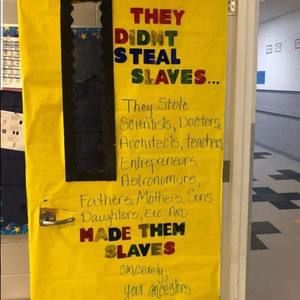 THEY
DIDNT
STEAL
SLAVES...
They Stole
Scientists, Doctors,
Architects, teachers,
Entrepreneurs,
Astronomers,
Fathers, Mothers, Sons,
Daughters, Etc. AND
MADE THEM
SLAVES
Sincerely,
your ancestors